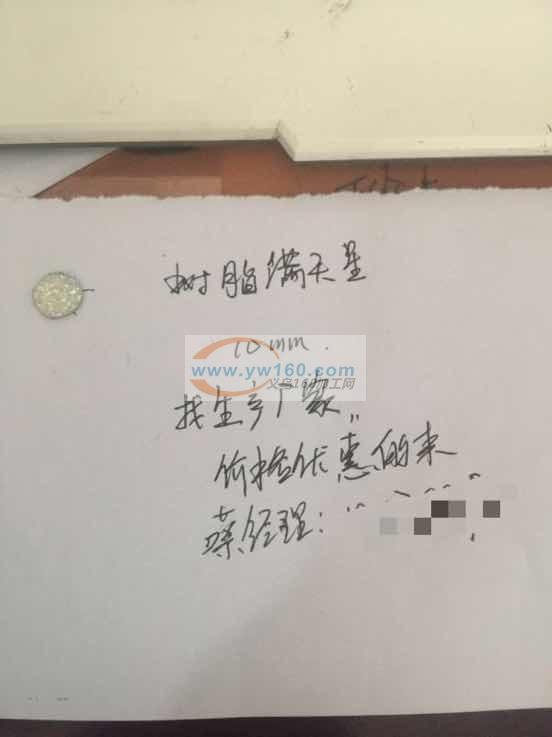 树脂满天星
10mm.
www.yw160.com
义乌160加工网
找生产厂家,,
价格优惠的来
蔡经理: